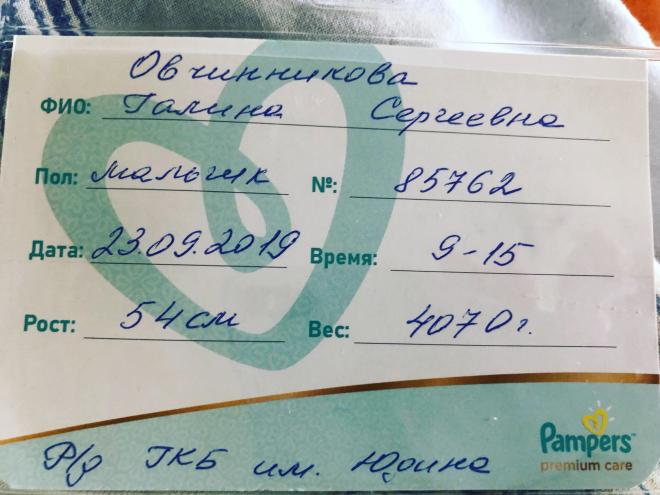 Овчинникова
ФИО: Галина Сергеевна
Пол: мальчик №: 85762
Дата: 23.09.2019 Время: 9-15
Рост: 54см Вес: 4070г.
Pampers
premium care
Р/д ГКБ им. Юдина